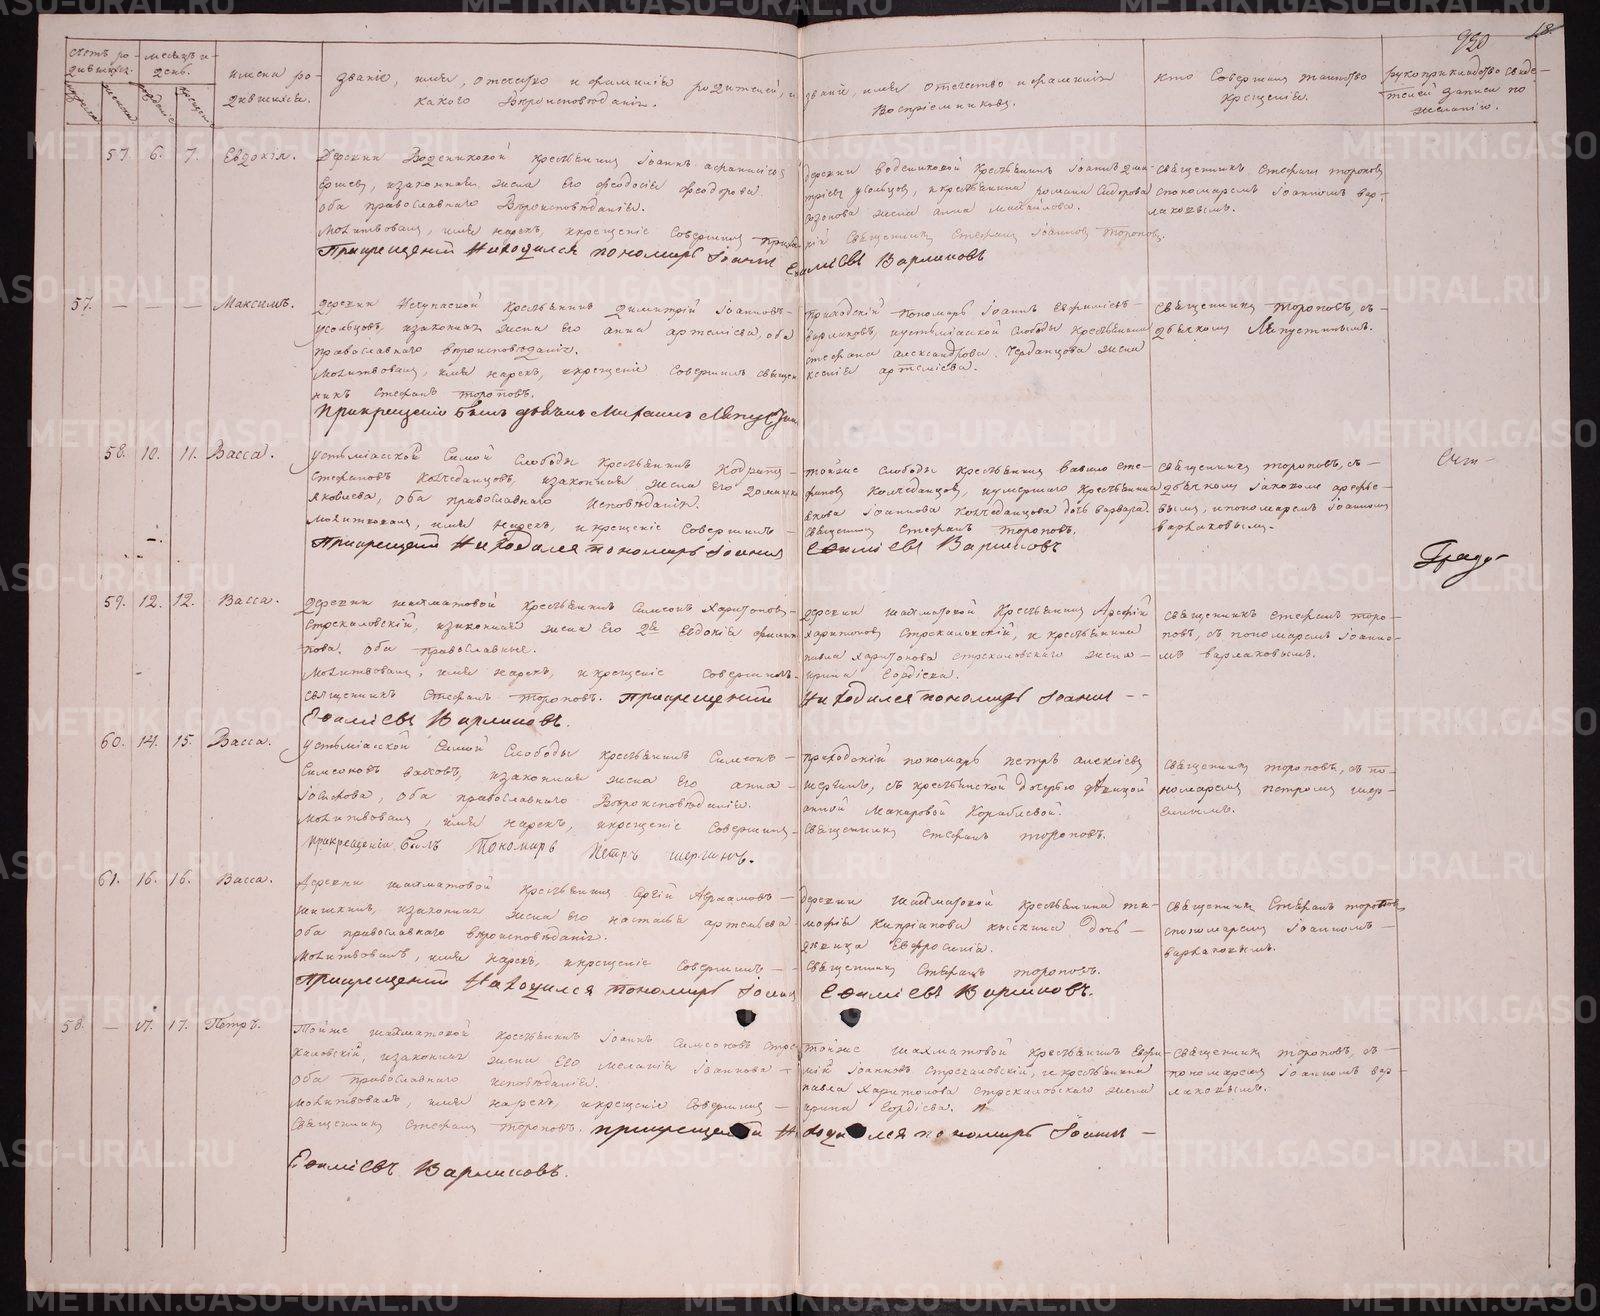 920 18.
счетъ ро-
дившихся.
мужеска. женска.
месяцъ и
день.
рожденiе крещенiе
имена ро-
дившихся.
званiе, имя, отечество и фамилiя родителей, и
какого вероисповеданiя.
званiе, имя отечество и фамилiя
воспрiемниковъ.
кто совершал таинство
крещенiя.
рукоприкладство свиде-
телей записи по
желанiю.
57. 6. 7. Евдокiя.
Деревни Водениковой крестьянинъ Iоаннъ Афанасiевъ
Ершовъ, и законная жена его Феодосiя Феодорова
оба православнаго вероисповеданiя.
Молитвовалъ, имя нарекъ, и крещенiе совершилъ приход-
При крещенiи находился пономарь Iоаннъ
деревни Водениковой крестьянинъ Iоаннъ Дими-
трiевъ Усольцовъ, и крестьянина Романа Сидорова
жена Анна Михайлова.
скiй священникъ Стефанъ Iоанновъ Тороповъ.
Ефимiевъ Варлаковъ
священникъ Стефанъ Тороповъ
с пономаремъ Iоанномъ Вар-
лаковымъ.
57. — — — Максимъ.
деревни крестьянинъ Димитрiй Iоанновъ
Усольцовъ, и законная жена его Анна Артемiева, оба
православнаго вероисповеданiя.
Молитвовалъ, имя нарекъ, и крещенiе совершилъ священ-
никъ Стефанъ Тороповъ.
При крещенiи былъ дьячекъ Михаилъ Ляпустинъ
приходскiй пономарь Iоаннъ Ефимiевъ
Варлаковъ, и Устьмiасской слободы крестьянина
Стефана Александрова Черданцова жена
Ксенiя Артемiева.
священникъ Тороповъ, съ
дьячкомъ Ляпустинымъ.
58. 10. 11. Васса.
Устьмiасской самой слободы крестьянинъ Кодратъ
Стефановъ Колчеданцовъ, и законная жена его Домника
Яковлева, оба православнаго исповеданiя.
Молитвовалъ, имя нарекъ, и крещенiе совершилъ
При крещенiи находился пономарь Iоаннъ
той же слободы крестьянинъ Вавило Сте-
фановъ Колчеданцовъ, и умершаго крестьянина
Якова Iоаннова Колчеданцова дочь Варвара.
священникъ Стефанъ Тороповъ.
Ефимiевъ Варлаковъ
священникъ Тороповъ, съ
дьячкомъ Iаковомъ Арефье-
вымъ, и пономаремъ Iоанномъ
Варлаковымъ.
59. 12. 12. Васса.
деревни Шахматовой крестьянинъ Симеонъ Харитоновъ
Стрекаловскiй, и законная жена его 2я Евдокiя Филип-
пова. оба православные.
Молитвовалъ, имя нарекъ, и крещенiе совершилъ
священникъ Стефанъ Тороповъ. При крещенiи
Ефимiевъ Варлаковъ.
деревни Шахматовой крестьянинъ Арефiй
Харитоновъ Стрекаловскiй, и крестьянина
Павла Харитонова Стрекаловскаго жена
Ирина Гордiева.
находился пономарь Iоаннъ
священникъ Стефанъ Торо-
повъ, съ пономаремъ Iоанно-
мъ Варлаковымъ.
60. 14. 15. Васса.
Устьмiасской самой слободы крестьянинъ Симеонъ
Симеоновъ, и законная жена его Анна
Iосифова, оба православнаго вероисповеданiя.
Молитвовалъ, имя нарекъ, и крещенiе совершилъ
При крещенiи былъ пономарь Петръ Шергинъ.
приходскiй пономарь Петръ Алексiевъ
Шергинъ, съ крестьянской дочерью девицой
Анной Макаровой Кораблевой.
священникъ Стефанъ Тороповъ.
священникъ Тороповъ, съ по-
номаремъ Петромъ Шер-
гинымъ.
61. 16. 16. Васса.
Деревни Шахматовой крестьянинъ Сергiй
Шишкинъ, и законная жена его Наталья Артемьева
оба православнаго вероисповеданiя.
Молитвовалъ, имя нарекъ, и крещенiе совершилъ
При крещенiи находился пономарь Iоаннъ
деревни Шахматовой крестьянина Ти-
мофiя Кипрiанова дочь
девица Евфросинiя.
священникъ Стефанъ Тороповъ.
Ефимiевъ Варлаковъ.
священникъ Стефанъ Тороповъ
с пономаремъ Iоанномъ
Варлаковымъ.
58. — 17. 17. Петръ.
Той же Шахматовой крестьянинъ Iоаннъ Симеоновъ Стре-
каловскiй, и законная жена его Мелания Iоаннова
оба православнаго исповеданiя.
Молитвовалъ, имя нарекъ, и крещенiе совершилъ
священникъ Стефанъ Тороповъ. при крещенiи
Ефимiевъ Варлаковъ.
той же Шахматовой крестьянинъ Ефи-
мiй Iоанновъ Стрекаловскiй, и крестьянина
Павла Харитонова Стрекаловскаго жена
Ирина Гордiева.
находился пономарь Iоаннъ
священникъ Тороповъ, съ
пономаремъ Iоанномъ Вар-
лаковымъ.
METRIKI.GASO-URAL.RU